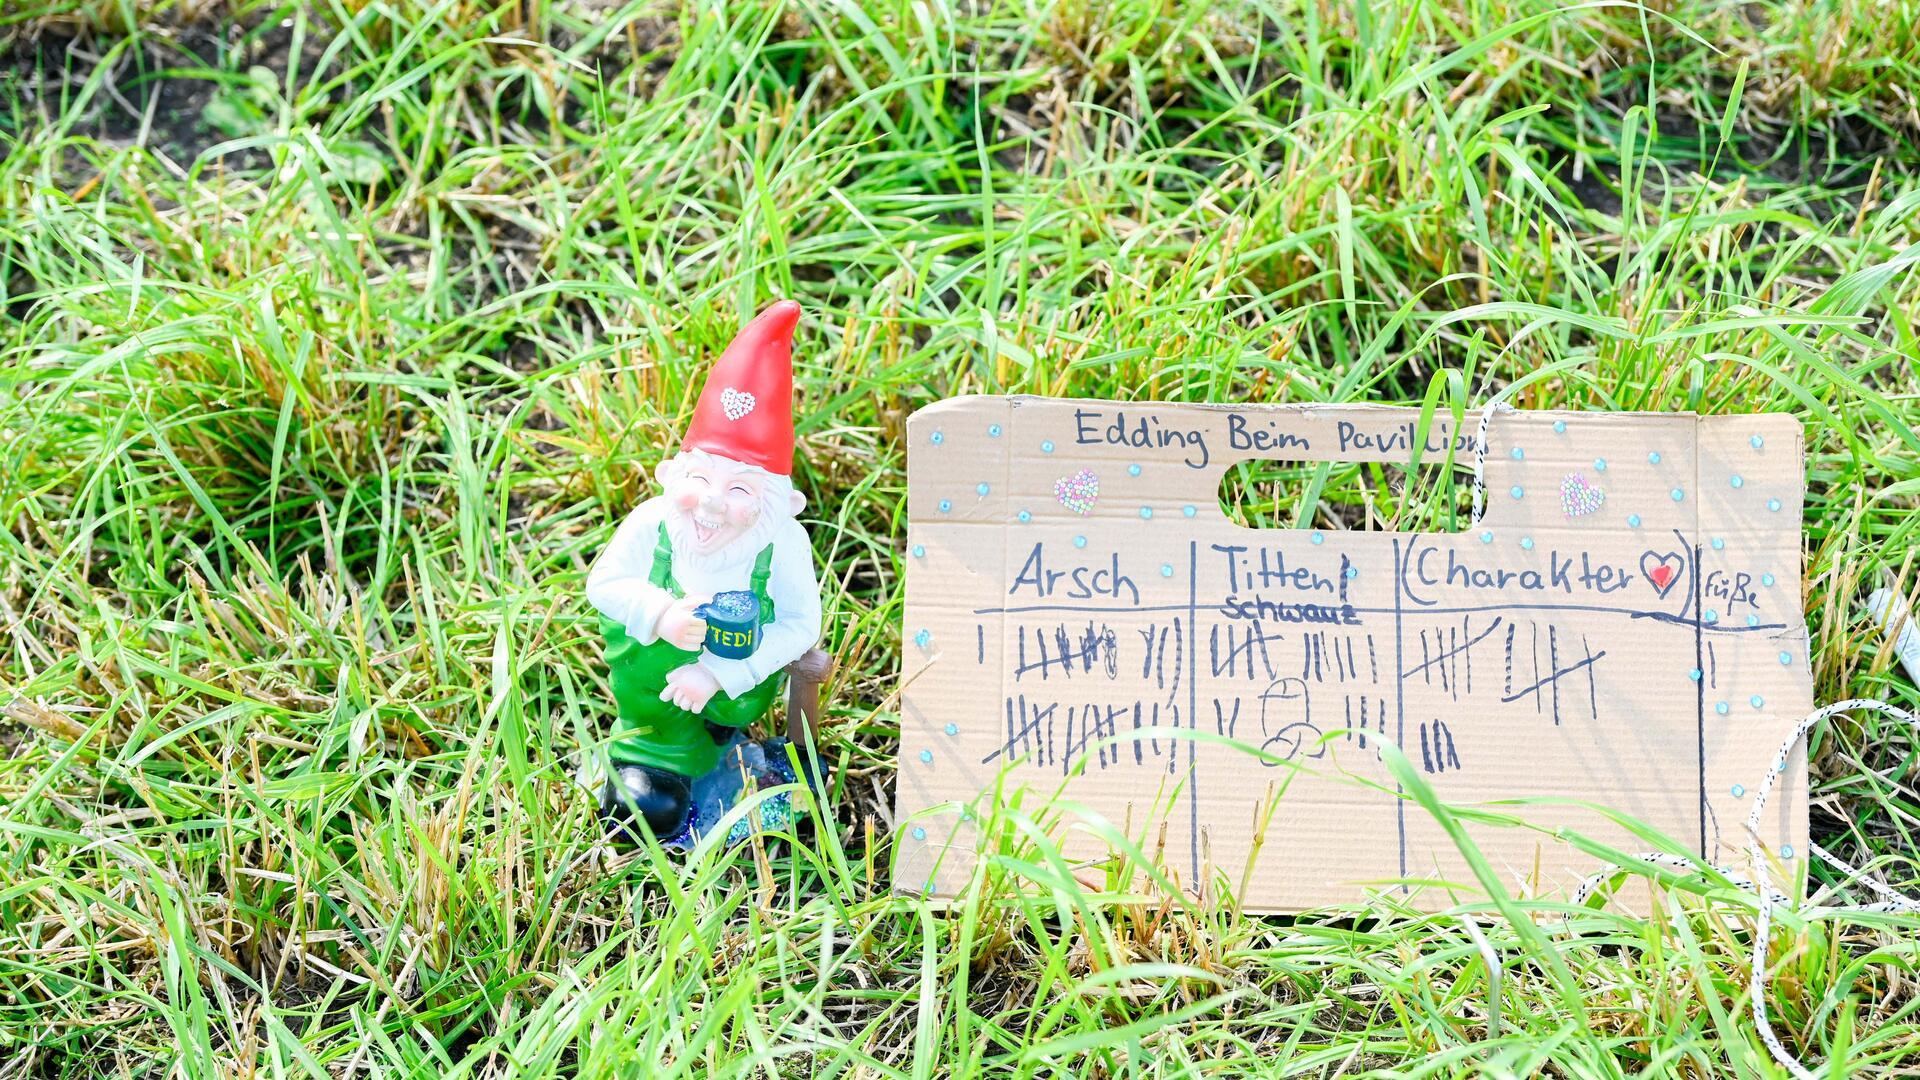 Edding Beim Pavillion
Arsch
Titten/
schwanz
Charakter
Füße
TEDi